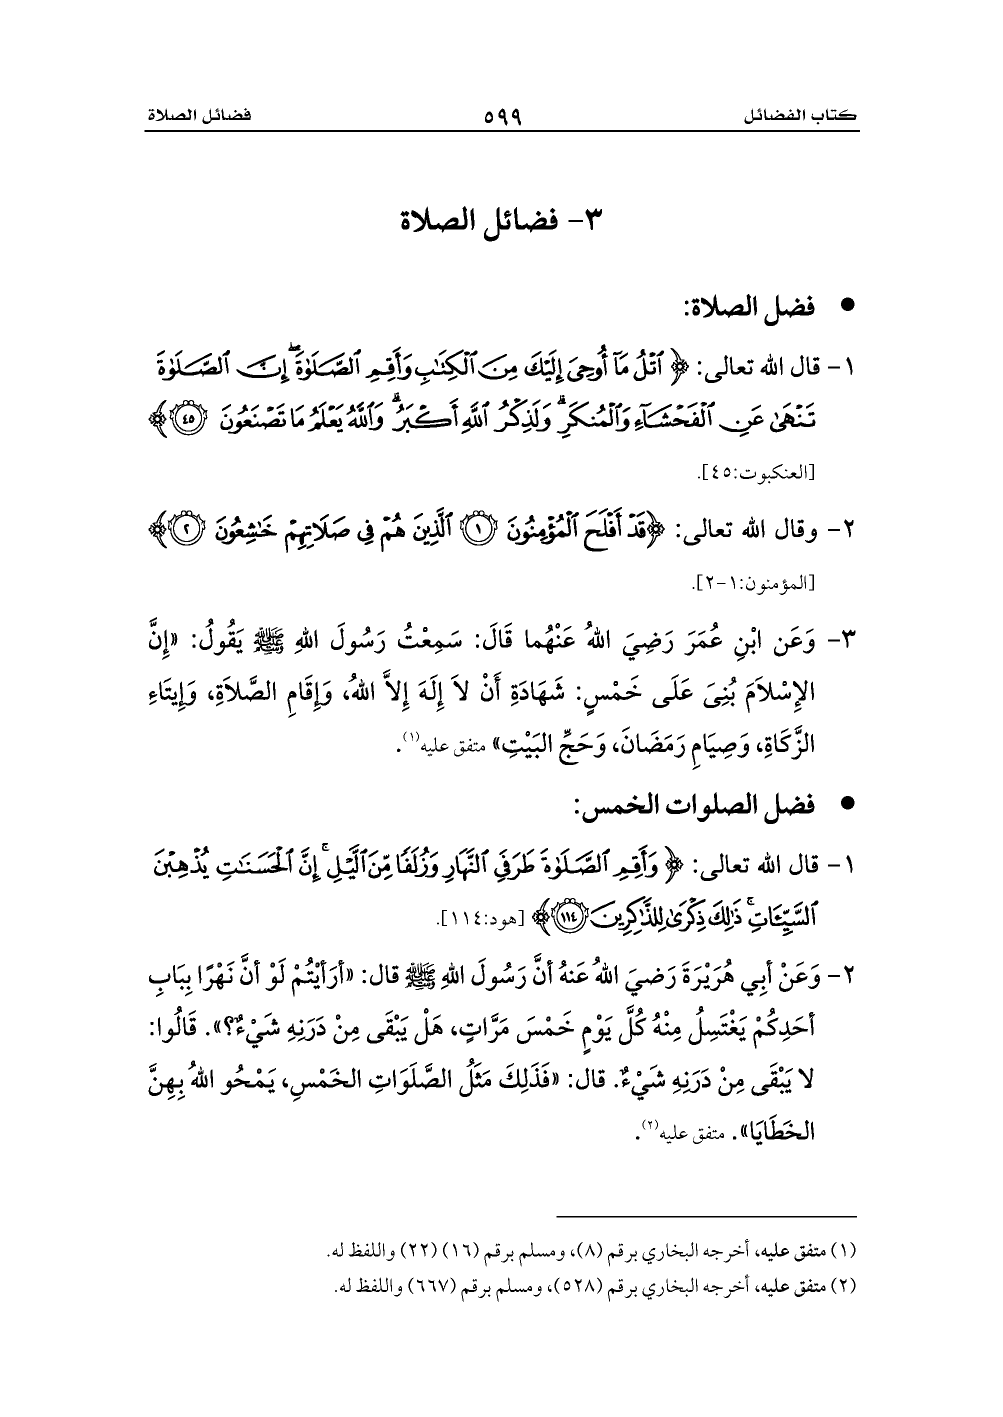 كتاب الفضائل ٥٩٩ فضائل الصلاة
٣- فضائل الصلاة
● فضل الصلاة:
١- قال الله تعالى: ﴿ ٱتْلُ مَآ أُوحِىَ إِلَيْكَ مِنَ ٱلْكِتَٰبِ وَأَقِمِ ٱلصَّلَوٰةَۖ إِنَّ ٱلصَّلَوٰةَ
تَنْهَىٰ عَنِ ٱلْفَحْشَآءِ وَٱلْمُنكَرِۗ وَلَذِكْرُ ٱللَّهِ أَكْبَرُۗ وَٱللَّهُ يَعْلَمُ مَا تَصْنَعُونَ ٤٥ ﴾
[العنكبوت:٤٥].
٢- وقال الله تعالى: ﴿قَدْ أَفْلَحَ ٱلْمُؤْمِنُونَ ١ ٱلَّذِينَ هُمْ فِى صَلَاتِهِمْ خَٰشِعُونَ ٢ ﴾
[المؤمنون:١-٢].
٣- وَعَن ابْنِ عُمَرَ رَضِيَ اللهُ عَنْهُما قَالَ: سَمِعْتُ رَسُولَ اللهِ ﷺ يَقُولُ: «إِنَّ
الإِسْلاَمَ بُنِيَ عَلَى خَمْسٍ: شَهَادَةِ أَنْ لاَ إِلَهَ إِلاَّ اللهُ، وَإِقَامِ الصَّلاَةِ، وَإِيتَاءِ
الزَّكَاةِ، وَصِيَامِ رَمَضَانَ، وَحَجِّ البَيْتِ» متفق عليه(١).
● فضل الصلوات الخمس:
١- قال الله تعالى: ﴿ وَأَقِمِ ٱلصَّلَوٰةَ طَرَفَىِ ٱلنَّهَارِ وَزُلَفًا مِّنَ ٱلَّيْلِۚ إِنَّ ٱلْحَسَنَٰتِ يُذْهِبْنَ
ٱلسَّيِّـَٔاتِۚ ذَٰلِكَ ذِكْرَىٰ لِلذَّٰكِرِينَ ١١٤ ﴾ [هود:١١٤].
٢- وَعَنْ أبِي هُرَيْرَةَ رَضيَ اللهُ عَنهُ أنَّ رَسُولَ اللهِ ﷺ قال: «أرَأيْتُمْ لَوْ أنَّ نَهْرًا بِبَابِ
أحَدِكُمْ يَغْتَسِلُ مِنْهُ كُلَّ يَوْمٍ خَمْسَ مَرَّاتٍ، هَلْ يَبْقَى مِنْ دَرَنِهِ شَيْءٌ؟». قَالُوا:
لا يَبْقَى مِنْ دَرَنِهِ شَيْءٌ. قال: «فَذَلِكَ مَثَلُ الصَّلَوَاتِ الخَمْسِ، يَمْحُو اللهُ بِهِنَّ
الخَطَايَا». متفق عليه(٢).
(١) متفق عليه، أخرجه البخاري برقم (٨)، ومسلم برقم (١٦) (٢٢) واللفظ له.
(٢) متفق عليه، أخرجه البخاري برقم (٥٢٨)، ومسلم برقم (٦٦٧) واللفظ له.